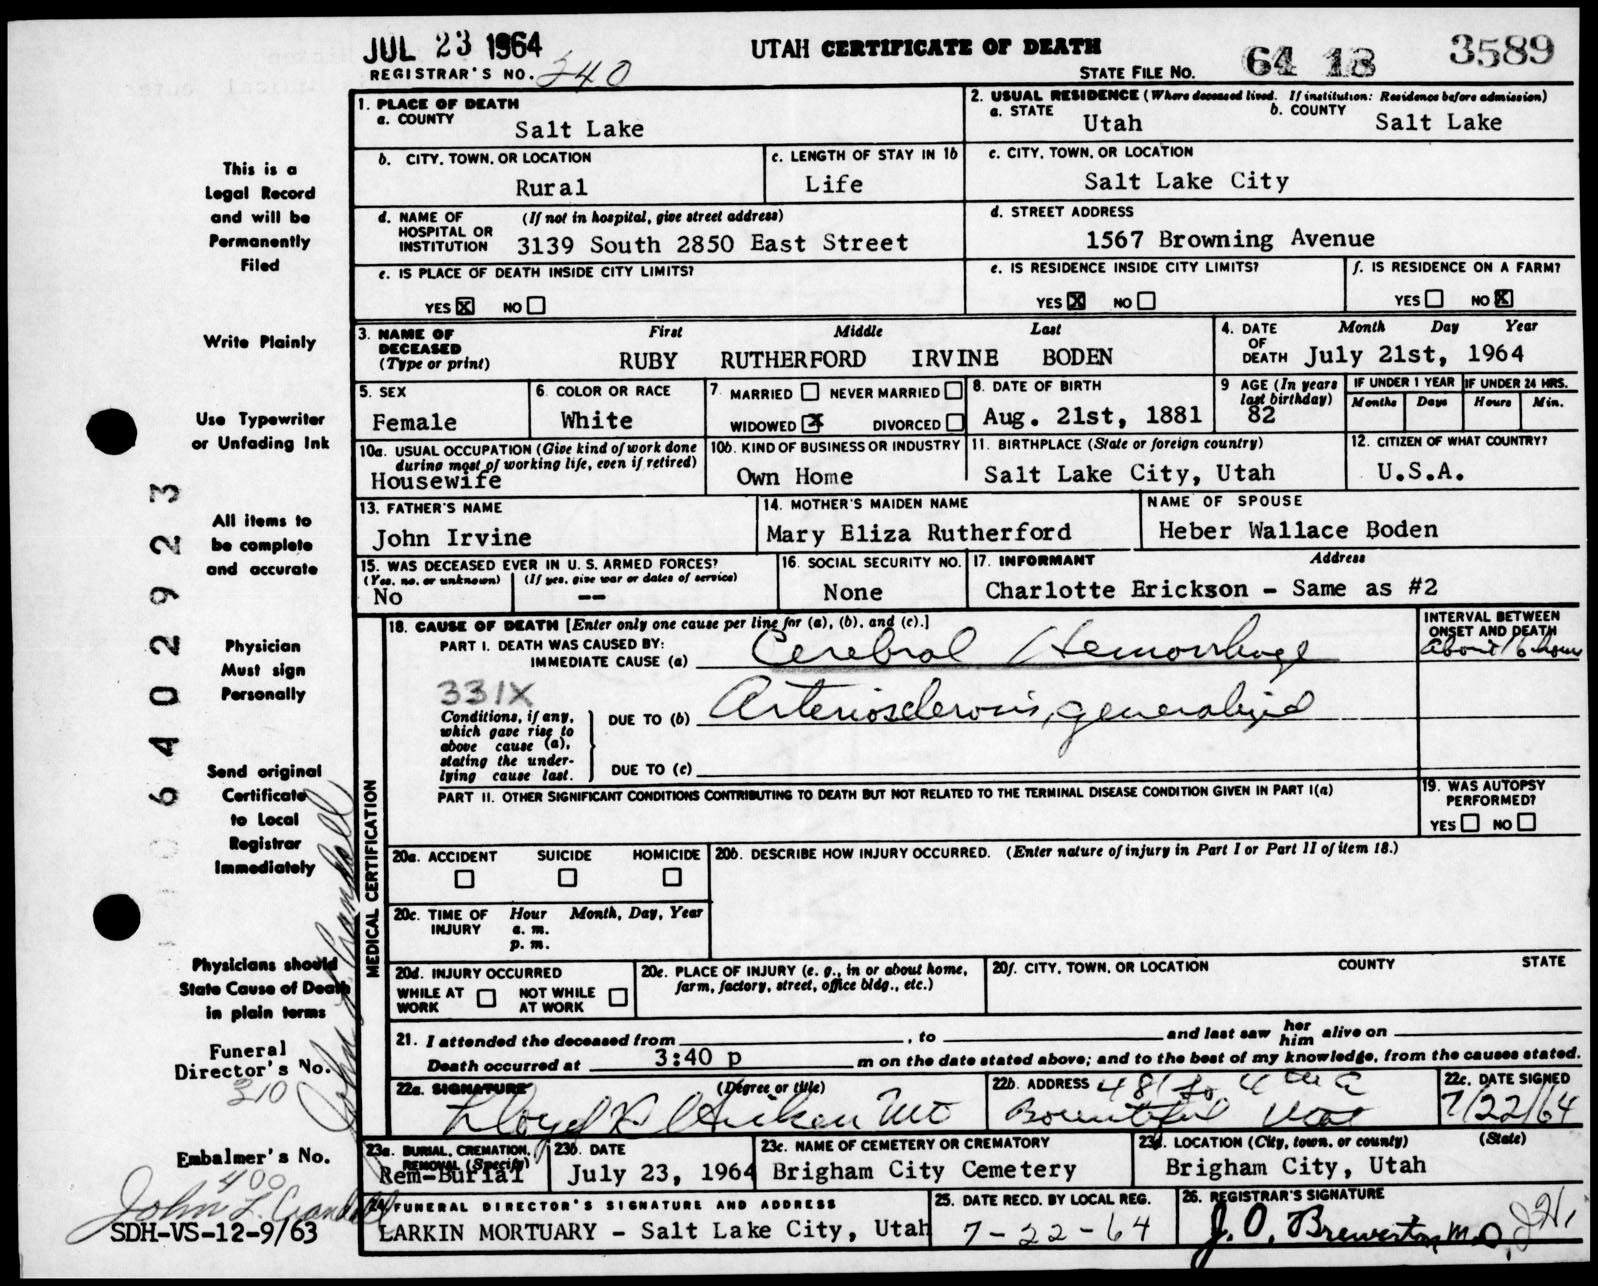 JUL 23 1964
UTAH CERTIFICATE OF DEATH
REGISTRAR'S NO. 340
STATE FILE NO. 64 18 3589
This is a
Legal Record
and will be
Permanently
Filed
Write Plainly
Use Typewriter
or Unfading Ink
All items to
be complete
and accurate
Physician
Must sign
Personally
Send original
Certificate
to Local
Registrar
Immediately
Physicians should
State Cause of Death
in plain terms
Funeral
Director's No.
310
Embalmer's No.
400
John L. Crandall
SDH-VS-12-9/63
640292 23
John L. Crandall
1. PLACE OF DEATH
a. COUNTY
Salt Lake
2. USUAL RESIDENCE (Where deceased lived. If institution: Residence before admission)
a. STATE Utah b. COUNTY Salt Lake
b. CITY, TOWN, OR LOCATION
Rural
c. LENGTH OF STAY IN 1b
Life
c. CITY, TOWN, OR LOCATION
Salt Lake City
d. NAME OF HOSPITAL OR INSTITUTION (If not in hospital, give street address)
3139 South 2850 East Street
d. STREET ADDRESS
1567 Browning Avenue
e. IS PLACE OF DEATH INSIDE CITY LIMITS?
YES X NO
e. IS RESIDENCE INSIDE CITY LIMITS?
YES X NO
f. IS RESIDENCE ON A FARM?
YES NO X
3. NAME OF DECEASED (Type or print) First Middle Last
RUBY RUTHERFORD IRVINE BODEN
4. DATE OF DEATH Month Day Year
July 21st, 1964
5. SEX
Female
6. COLOR OR RACE
White
7. MARRIED NEVER MARRIED
WIDOWED X DIVORCED
8. DATE OF BIRTH
Aug. 21st, 1881
9 AGE (In years last birthday)
82
IF UNDER 1 YEAR IF UNDER 24 HRS.
Months Days Hours Min.
10a. USUAL OCCUPATION (Give kind of work done during most of working life, even if retired)
Housewife
10b. KIND OF BUSINESS OR INDUSTRY
Own Home
11. BIRTHPLACE (State or foreign country)
Salt Lake City, Utah
12. CITIZEN OF WHAT COUNTRY?
U.S.A.
13. FATHER'S NAME
John Irvine
14. MOTHER'S MAIDEN NAME
Mary Eliza Rutherford
NAME OF SPOUSE
Heber Wallace Boden
15. WAS DECEASED EVER IN U.S. ARMED FORCES?
(Yes, no, or unknown) (If yes, give war or dates of service)
No --
16. SOCIAL SECURITY NO.
None
17. INFORMANT Address
Charlotte Erickson - Same as #2
MEDICAL CERTIFICATION
18. CAUSE OF DEATH [Enter only one cause per line for (a), (b), and (c).]
INTERVAL BETWEEN ONSET AND DEATH
PART I. DEATH WAS CAUSED BY:
IMMEDIATE CAUSE (a) Cerebral Hemorrhage
About 16 hours
331X
Conditions, if any, which gave rise to above cause (a), stating the underlying cause last.
DUE TO (b) Arteriosclerosis, generalized
DUE TO (c)
PART II. OTHER SIGNIFICANT CONDITIONS CONTRIBUTING TO DEATH BUT NOT RELATED TO THE TERMINAL DISEASE CONDITION GIVEN IN PART I(a)
19. WAS AUTOPSY PERFORMED?
YES NO
20a. ACCIDENT SUICIDE HOMICIDE
20b. DESCRIBE HOW INJURY OCCURRED. (Enter nature of injury in Part I or Part II of item 18.)
20c. TIME OF INJURY Hour Month, Day, Year
a. m.
p. m.
20d. INJURY OCCURRED
WHILE AT WORK NOT WHILE AT WORK
20e. PLACE OF INJURY (e. g., in or about home, farm, factory, street, office bldg., etc.)
20f. CITY, TOWN, OR LOCATION COUNTY STATE
21. I attended the deceased from , to and last saw her him alive on
Death occurred at 3:40 p m on the date stated above; and to the best of my knowledge, from the causes stated.
22a. SIGNATURE (Degree or title)
22b. ADDRESS
Bountiful Utah
22c. DATE SIGNED
7/22/64
23a. BURIAL, CREMATION, REMOVAL (Specify)
Rem-Burial
23b. DATE
July 23, 1964
23c. NAME OF CEMETERY OR CREMATORY
Brigham City Cemetery
23d. LOCATION (City, town, or county) (State)
Brigham City, Utah
24. FUNERAL DIRECTOR'S SIGNATURE AND ADDRESS
LARKIN MORTUARY - Salt Lake City, Utah
25. DATE RECD. BY LOCAL REG.
7-22-64
26. REGISTRAR'S SIGNATURE
J. O. Brewerton, M.D.